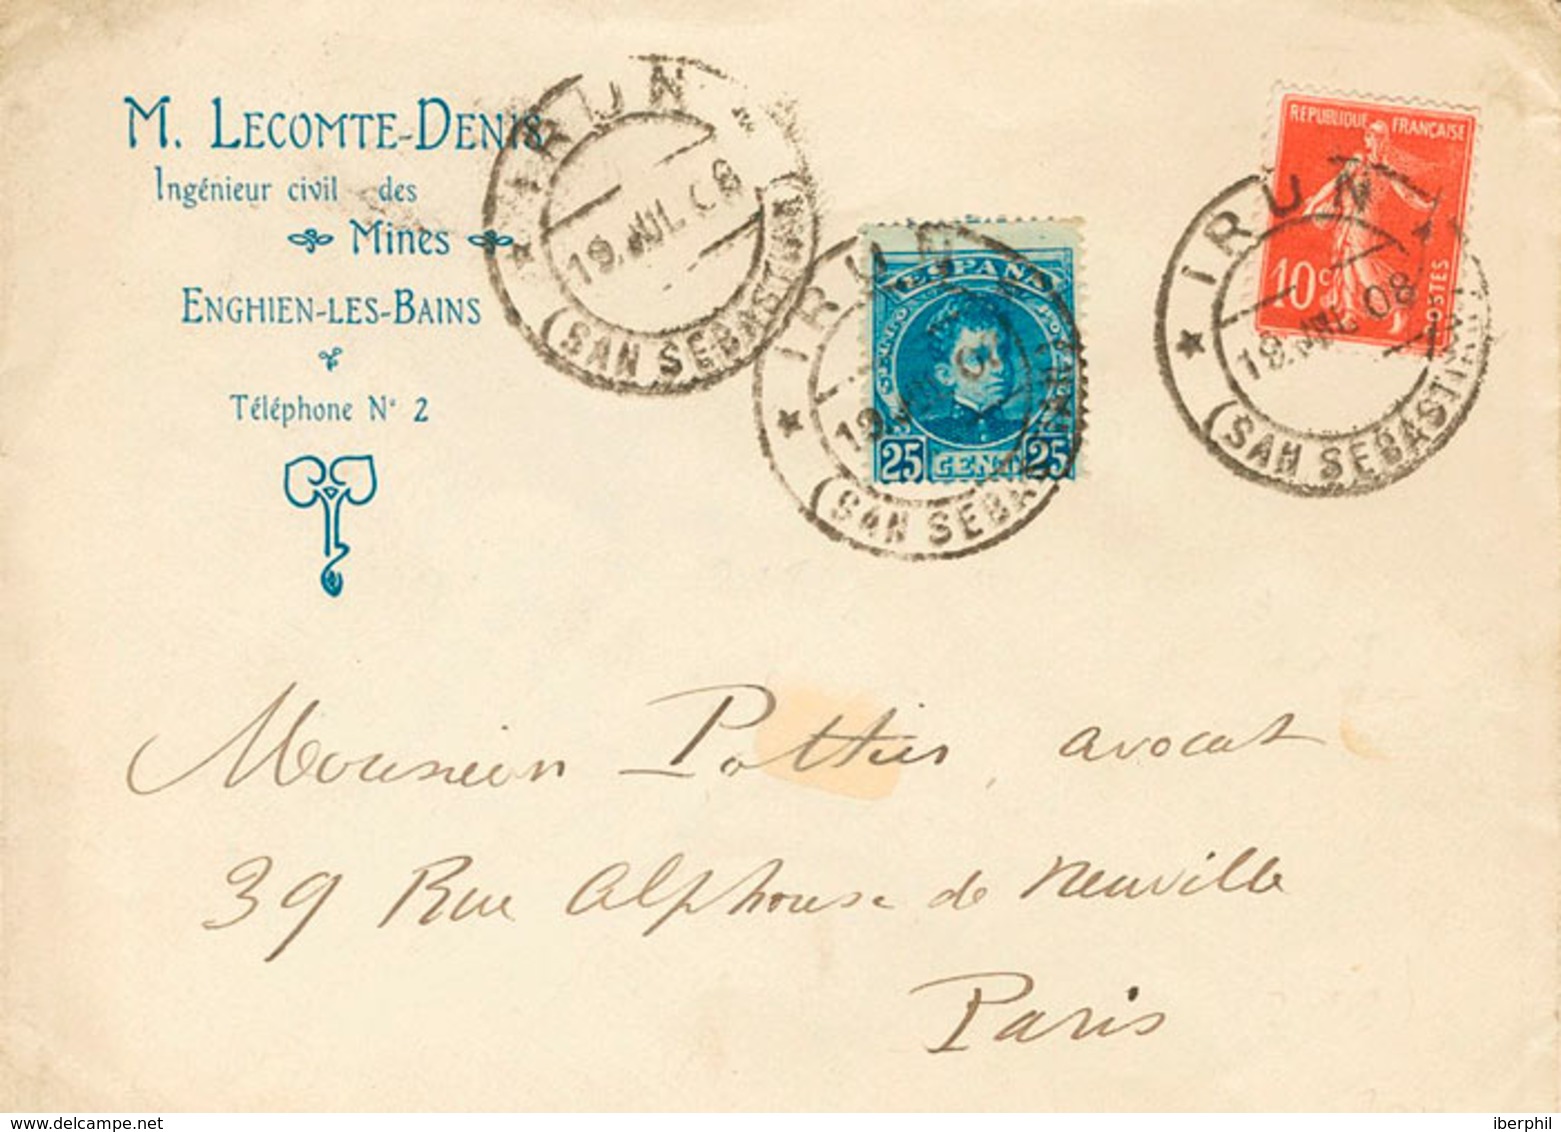 M. LECOMTE-DENIS
Ingénieur civil des
Mines
ENGHIEN-LES-BAINS
Téléphone N° 2
IRUN
19.JUL.08
(SAN SEBASTIAN)
IRUN
19.JUL.08
(SAN SEBAS
ESPAÑA
25 CENT 25
REPUBLIQUE FRANÇAISE
10c
POSTES
IRUN
19.JUL.08
(SAN SEBASTIAN)
Monsieur Pottier, avocat
39 Rue Alphonse de Neuville
Paris
iberphil
delcampe.net